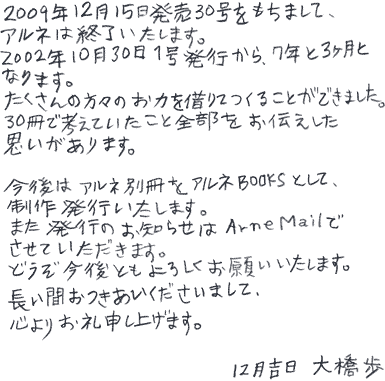 2009年12月15日発売30号をもちまして、
アルネは終了いたします。
2002年10月30日1号発行から、7年と3ヶ月と
なります。
たくさんの方々のお力を借りてつくることができました。
30冊で考えていたこと全部をお伝えした
思いがあります。
今後はアルネ別冊をアルネBOOKSとして、
制作発行いたします。
また発行のお知らせはArneMailで
させていただきます。
どうぞ今後ともよろしくお願いいたします。
長い間おつきあいくださいまして、
心よりお礼申し上げます。
12月吉日 大橋歩